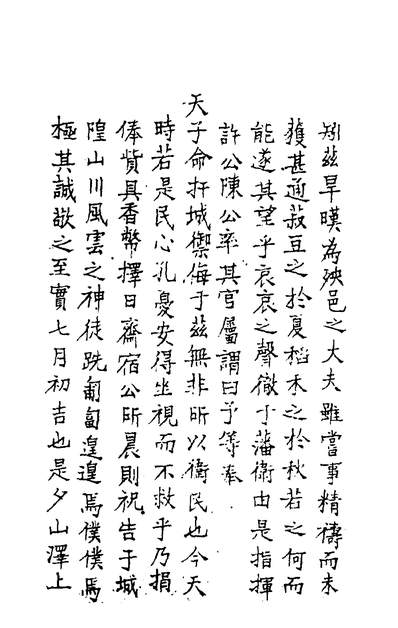 矧茲旱暵為殃邑之大夫雖嘗事精禱而未
獲甚通菽豆之於夏稻禾之於秋若之何而
能遂其望乎哀哀之聲徹于藩衛由是指揮
許公陳公率其官屬謂曰予等奉
天子命扞城禦侮于茲無非所以衛民也今天
時若是民心孔憂安得坐視而不救乎乃捐
俸貲具香幣擇日齋宿公所晨則祝告于城
隍山川風雲之神徒跣匍匐遑遑焉僕僕焉
極其誠敬之至實七月初吉也是夕山澤上